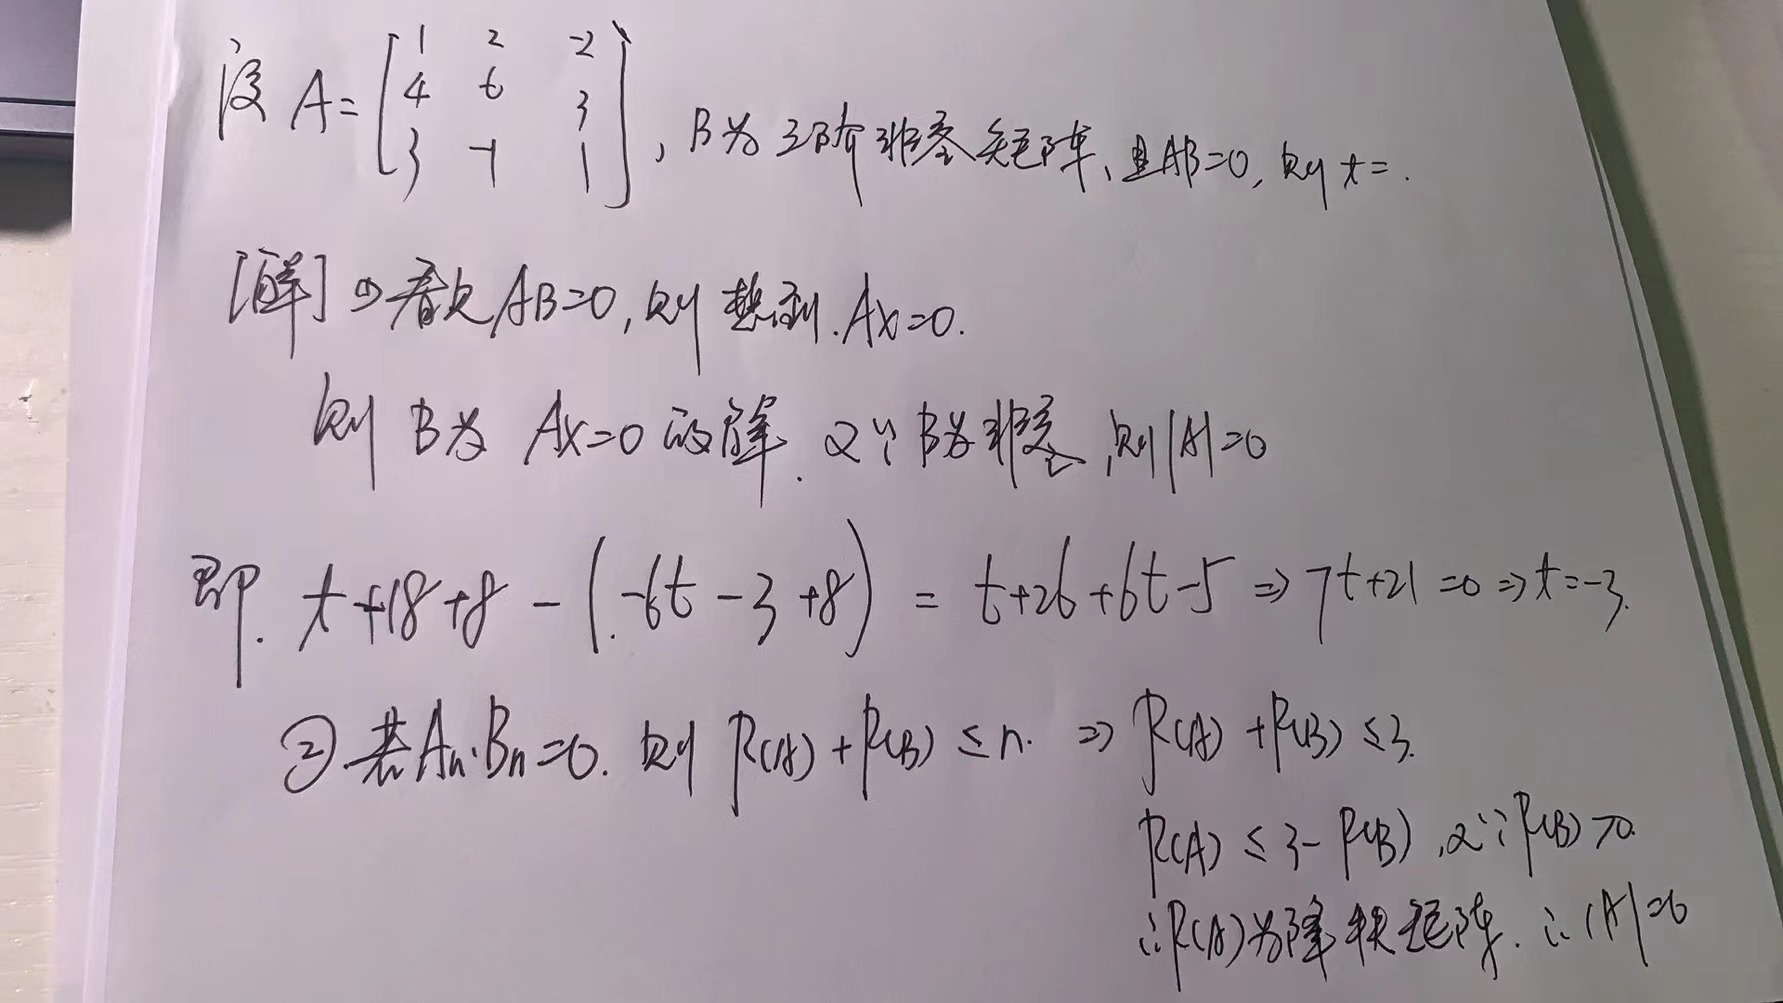 设 A = [1 2 -2
4 t 3
3 -1 1], B为三阶非零矩阵, 且AB=0, 则 t= .
[解] ① 看见AB=0, 则想到. Ax=0.
则 B为 Ax=0 的解. 又∵B为非零, 则|A|=0
即. t+18+8-(-6t-3+8) = t+26+6t-5 ⇒ 7t+21=0 ⇒ t=-3.
② 若An·Bn=0. 则 R(A)+R(B)≤n. ⇒ R(A)+R(B)≤3.
R(A)≤3-R(B), 又∵R(B)>0.
∴R(A)为降秩矩阵. ∴|A|=0